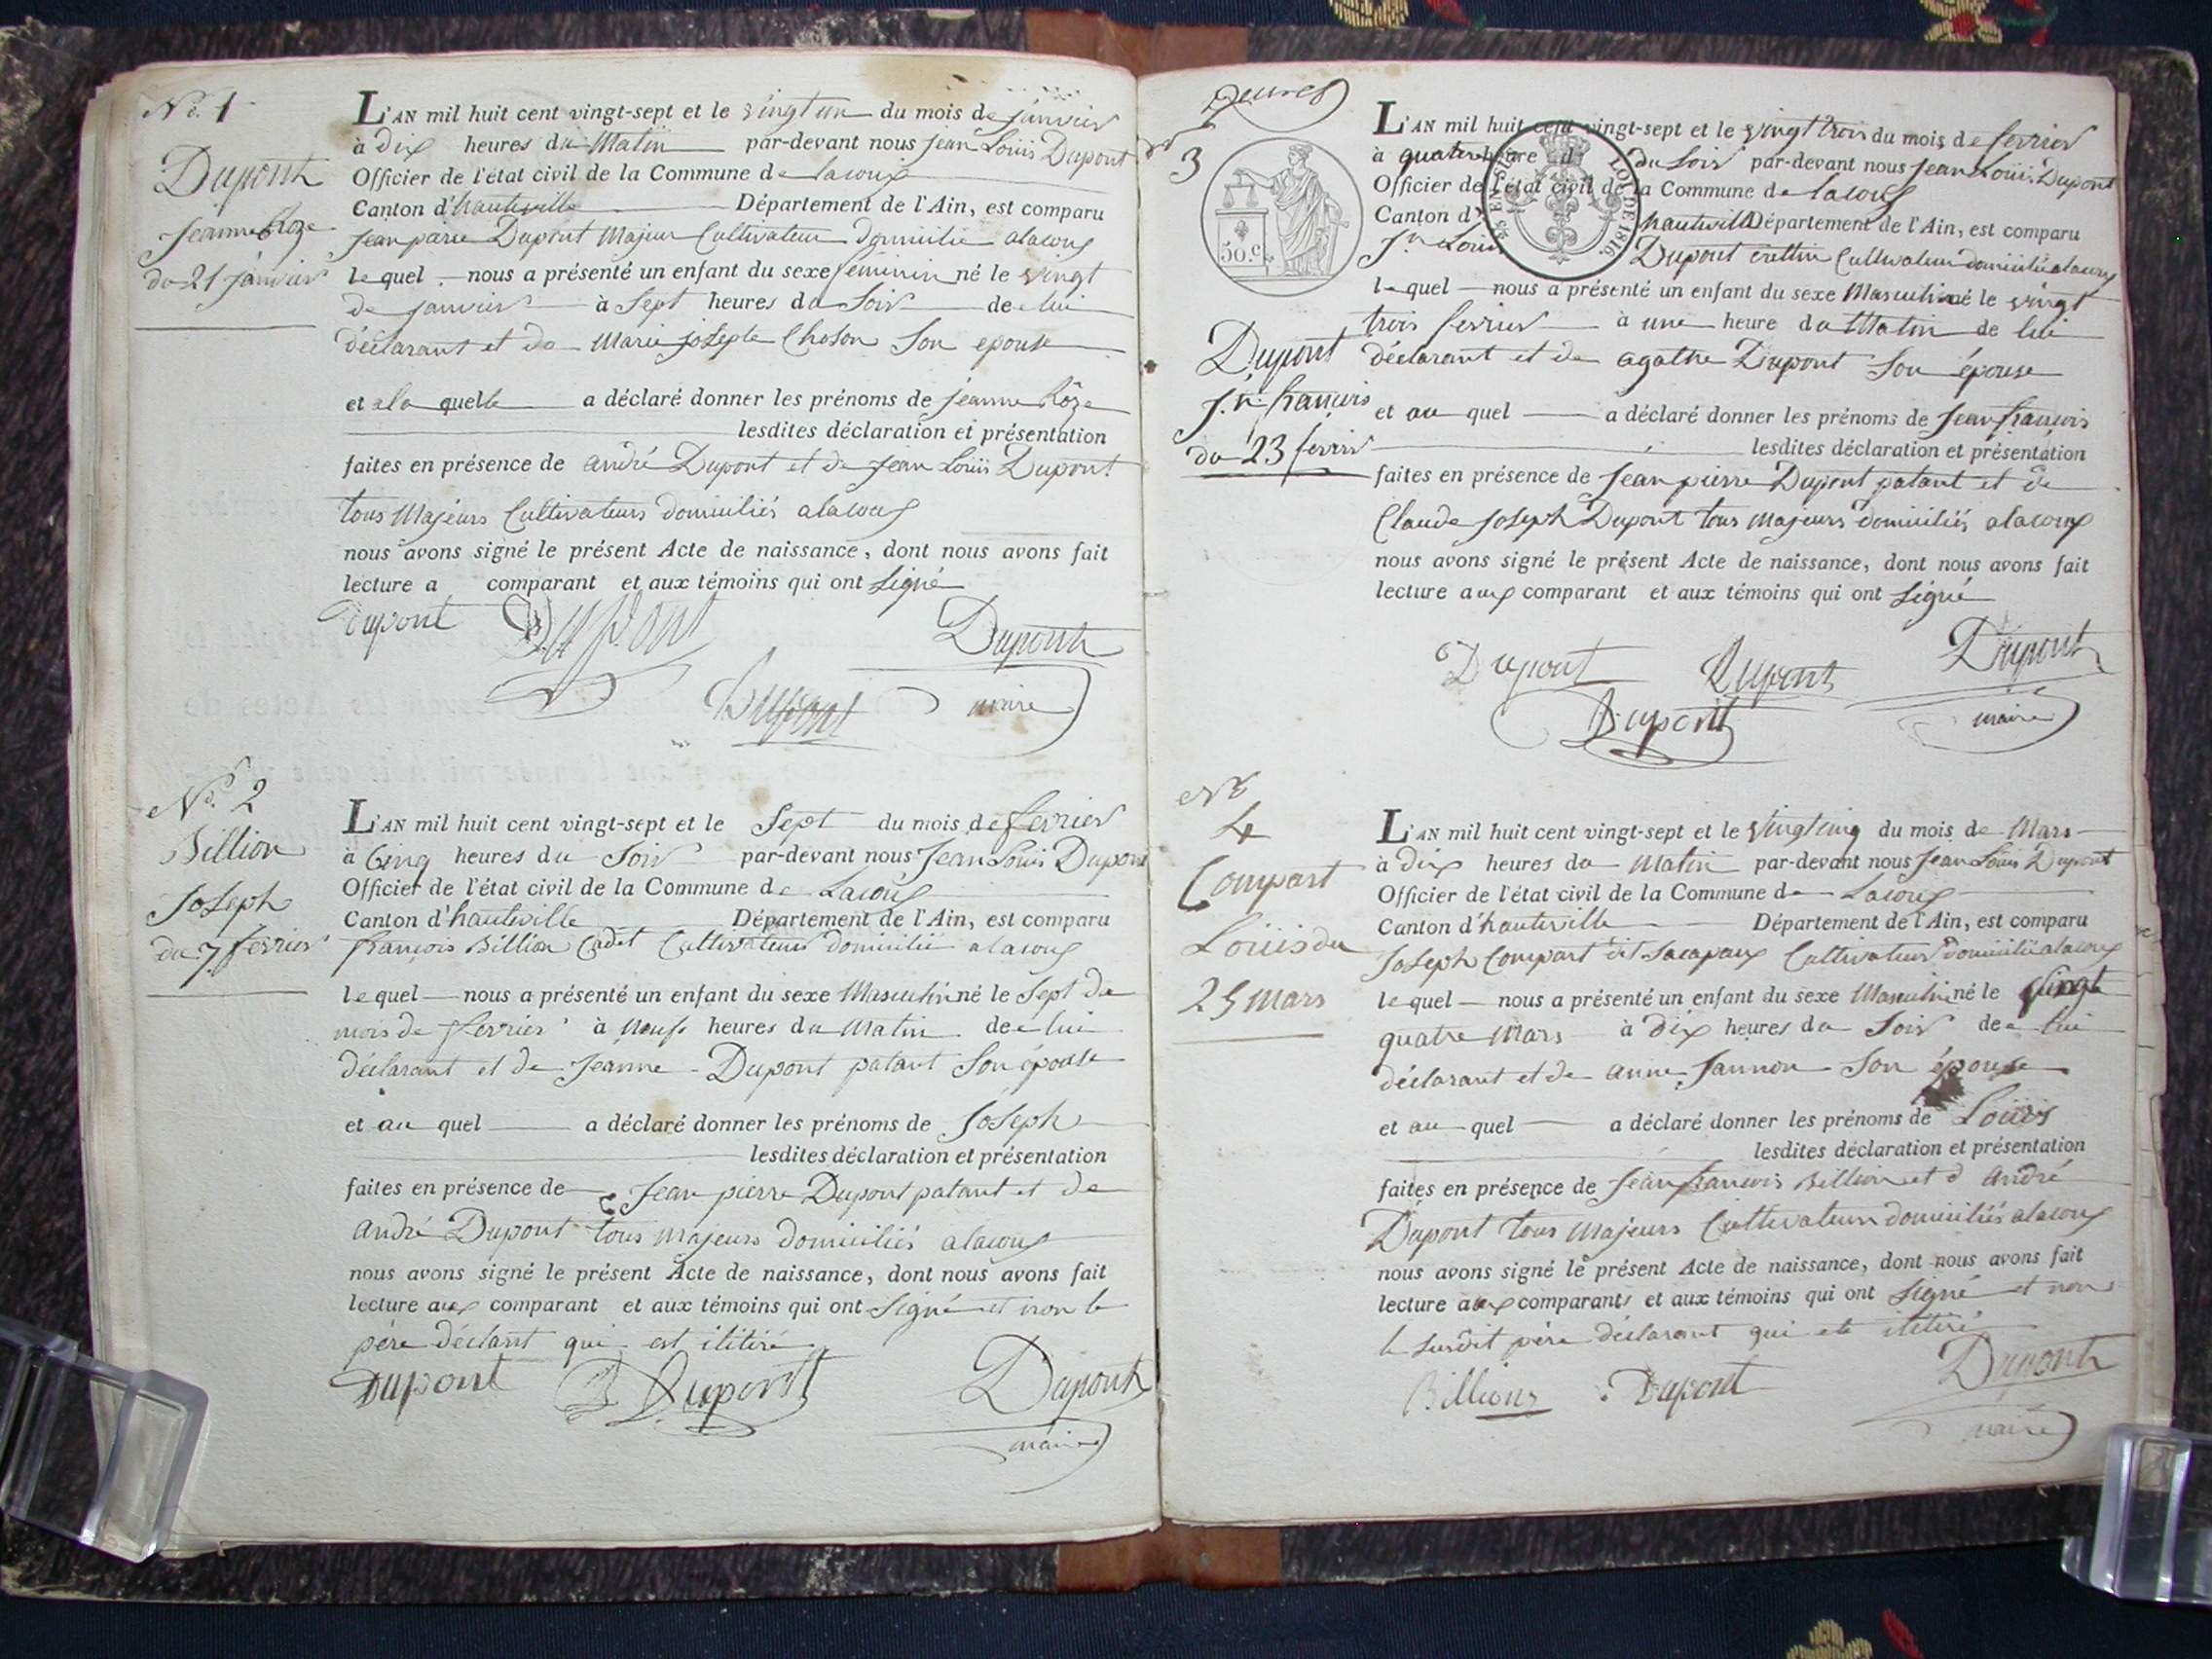 N.o 1
Dupont
Jeanne Rôze
du 21 janvier
L'AN mil huit cent vingt-sept et le vingt un du mois de janvier
à dix heures du Matin par-devant nous Jean Louis Dupont
Officier de l'état civil de la Commune de lacoux
Canton d'hauteville Département de l'Ain, est comparu
Dupont Majeur Cultivateur domicilié alacoux
lequel nous a présenté un enfant du sexe féminin né le vingt
de janvier à Sept heures du Soir de lui
déclarant et de Marie josephe Choson Son epouse
et a la quelle a déclaré donner les prénoms de jeanne Rôze
lesdites déclaration et présentation
faites en présence de andré Dupont et de Jean Louis Dupont
tous Majeurs Cultivateurs domiciliés alacoux
nous avons signé le présent Acte de naissance, dont nous avons fait
lecture a comparant et aux témoins qui ont Signé
Dupont Dupont Dupont
Dupont maire
N.o 2
Billion
Joseph
du 7 fevrier
L'AN mil huit cent vingt-sept et le Sept du mois de fevrier
à Cinq heures du Soir par-devant nous Jean Louis Dupont
Officier de l'état civil de la Commune de Lacoux
Canton d'hauteville Département de l'Ain, est comparu
françois Billion Cadet Cultivateur domicilié alacoux
lequel nous a présenté un enfant du sexe Masculin né le Sept du
mois de fevrier à neuf heures du Matin de lui
déclarant et de Jeanne Dupont patant Son épouse
et au quel a déclaré donner les prénoms de Joseph
lesdites déclaration et présentation
faites en présence de Jean pierre Dupont patant et de
andré Dupont tous majeurs domiciliés alacoux
nous avons signé le présent Acte de naissance, dont nous avons fait
lecture aux comparant et aux témoins qui ont Signé et non le
père déclarant qui est ilitéré
Dupont Dupont Dupont
maire
3
50 c.
LOI DE 1816
Dupont
J.n françois
du 23 fevrier
L'AN mil huit cent vingt-sept et le vingt trois du mois de fevrier
à quatre heure du Soir par-devant nous Jean Louis Dupont
Officier de l'état civil de la Commune de lacoux
Canton d'hauteville Département de l'Ain, est comparu
J.n Louis Dupont Cultivateur domicilié alacoux
lequel nous a présenté un enfant du sexe Masculin né le vingt
trois fevrier à une heure du Matin de lui
déclarant et de agathe Dupont Son épouse
et au quel a déclaré donner les prénoms de Jean françois
lesdites déclaration et présentation
faites en présence de Jean pierre Dupont patant et de
Claude Joseph Dupont tous majeurs domiciliés alacoux
nous avons signé le présent Acte de naissance, dont nous avons fait
lecture aux comparant et aux témoins qui ont Signé
Dupont Dupont Dupont
Dupont maire
N.o
4
Compart
Louis du
25 mars
L'AN mil huit cent vingt-sept et le vingt cinq du mois de Mars
à dix heures du Matin par-devant nous Jean Louis Dupont
Officier de l'état civil de la Commune de Lacoux
Canton d'hauteville Département de l'Ain, est comparu
Joseph Compart dit Cultivateur domicilié alacoux
lequel nous a présenté un enfant du sexe Masculin né le vingt
quatre Mars à dix heures du Soir de lui
déclarant et de anne Jannon Son épouse
et au quel a déclaré donner les prénoms de Louis
lesdites déclaration et présentation
faites en présence de Jean françois Billion et d'andré
Dupont tous Majeurs Cultivateurs domiciliés alacoux
nous avons signé le présent Acte de naissance, dont nous avons fait
lecture aux comparants et aux témoins qui ont Signé et non
le susdit père déclarant qui ilitéré
Billion Dupont Dupont
maire